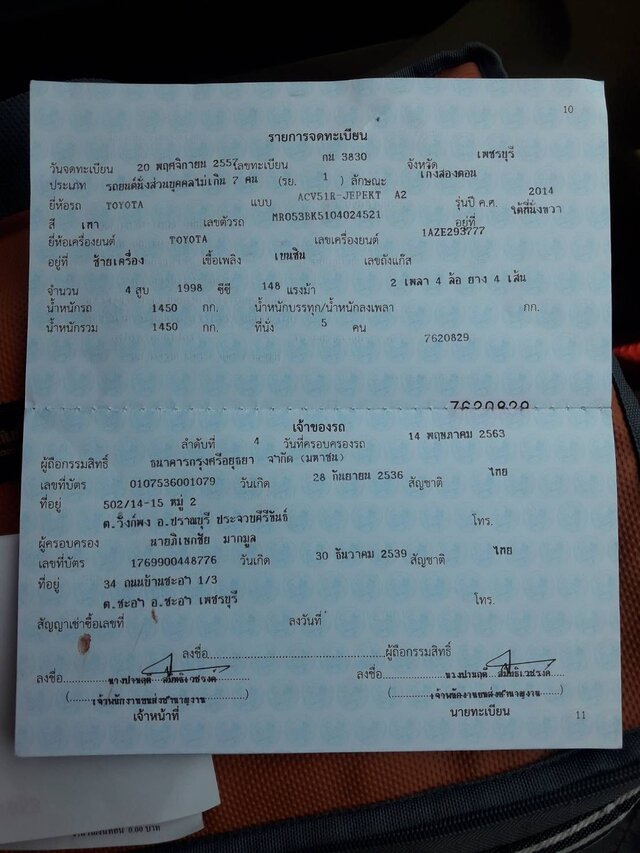 10
รายการจดทะเบียน
วันจดทะเบียน 20 พฤศจิกายน 2557 เลขทะเบียน กน 3830 จังหวัด เพชรบุรี
ประเภท รถยนต์นั่งส่วนบุคคลไม่เกิน 7 คน (รย. 1 ) ลักษณะ เก๋งสองตอน
ยี่ห้อรถ TOYOTA แบบ ACV51R-JEPEKT A2 รุ่นปี ค.ศ. 2014
สี เทา เลขตัวรถ MR053BK5104024521 อยู่ที่ ใต้ที่นั่งขวา
ยี่ห้อเครื่องยนต์ TOYOTA เลขเครื่องยนต์ 1AZE293777
อยู่ที่ ซ้ายเครื่อง เชื้อเพลิง เบนซิน เลขถังแก๊ส
จำนวน 4 สูบ 1998 ซีซี 148 แรงม้า 2 เพลา 4 ล้อ ยาง 4 เส้น
น้ำหนักรถ 1450 กก. น้ำหนักบรรทุก/น้ำหนักลงเพลา กก.
น้ำหนักรวม 1450 กก. ที่นั่ง 5 คน
7620829
7620829
เจ้าของรถ
ลำดับที่ 4 วันที่ครอบครองรถ 14 พฤษภาคม 2563
ผู้ถือกรรมสิทธิ์ ธนาคารกรุงศรีอยุธยา จำกัด (มหาชน)
เลขที่บัตร 0107536001079 วันเกิด 28 กันยายน 2536 สัญชาติ ไทย
ที่อยู่ 502/14-15 หมู่ 2
ต.วังก์พง อ.ปราณบุรี ประจวบคีรีขันธ์ โทร.
ผู้ครอบครอง นายภิเษกชัย มากมูล
เลขที่บัตร 1769900448776 วันเกิด 30 ธันวาคม 2539 สัญชาติ ไทย
ที่อยู่ 34 ถนนบ้านชะอำ 1/3
ต.ชะอำ อ.ชะอำ เพชรบุรี โทร.
สัญญาเช่าซื้อเลขที่ ลงวันที่
ลงชื่อ ผู้ถือกรรมสิทธิ์
ลงชื่อ ลงชื่อ
(เจ้าพนักงานขนส่งชำนาญงาน) (เจ้าพนักงานขนส่งชำนาญงาน)
เจ้าหน้าที่ นายทะเบียน
11
0.00 บาท